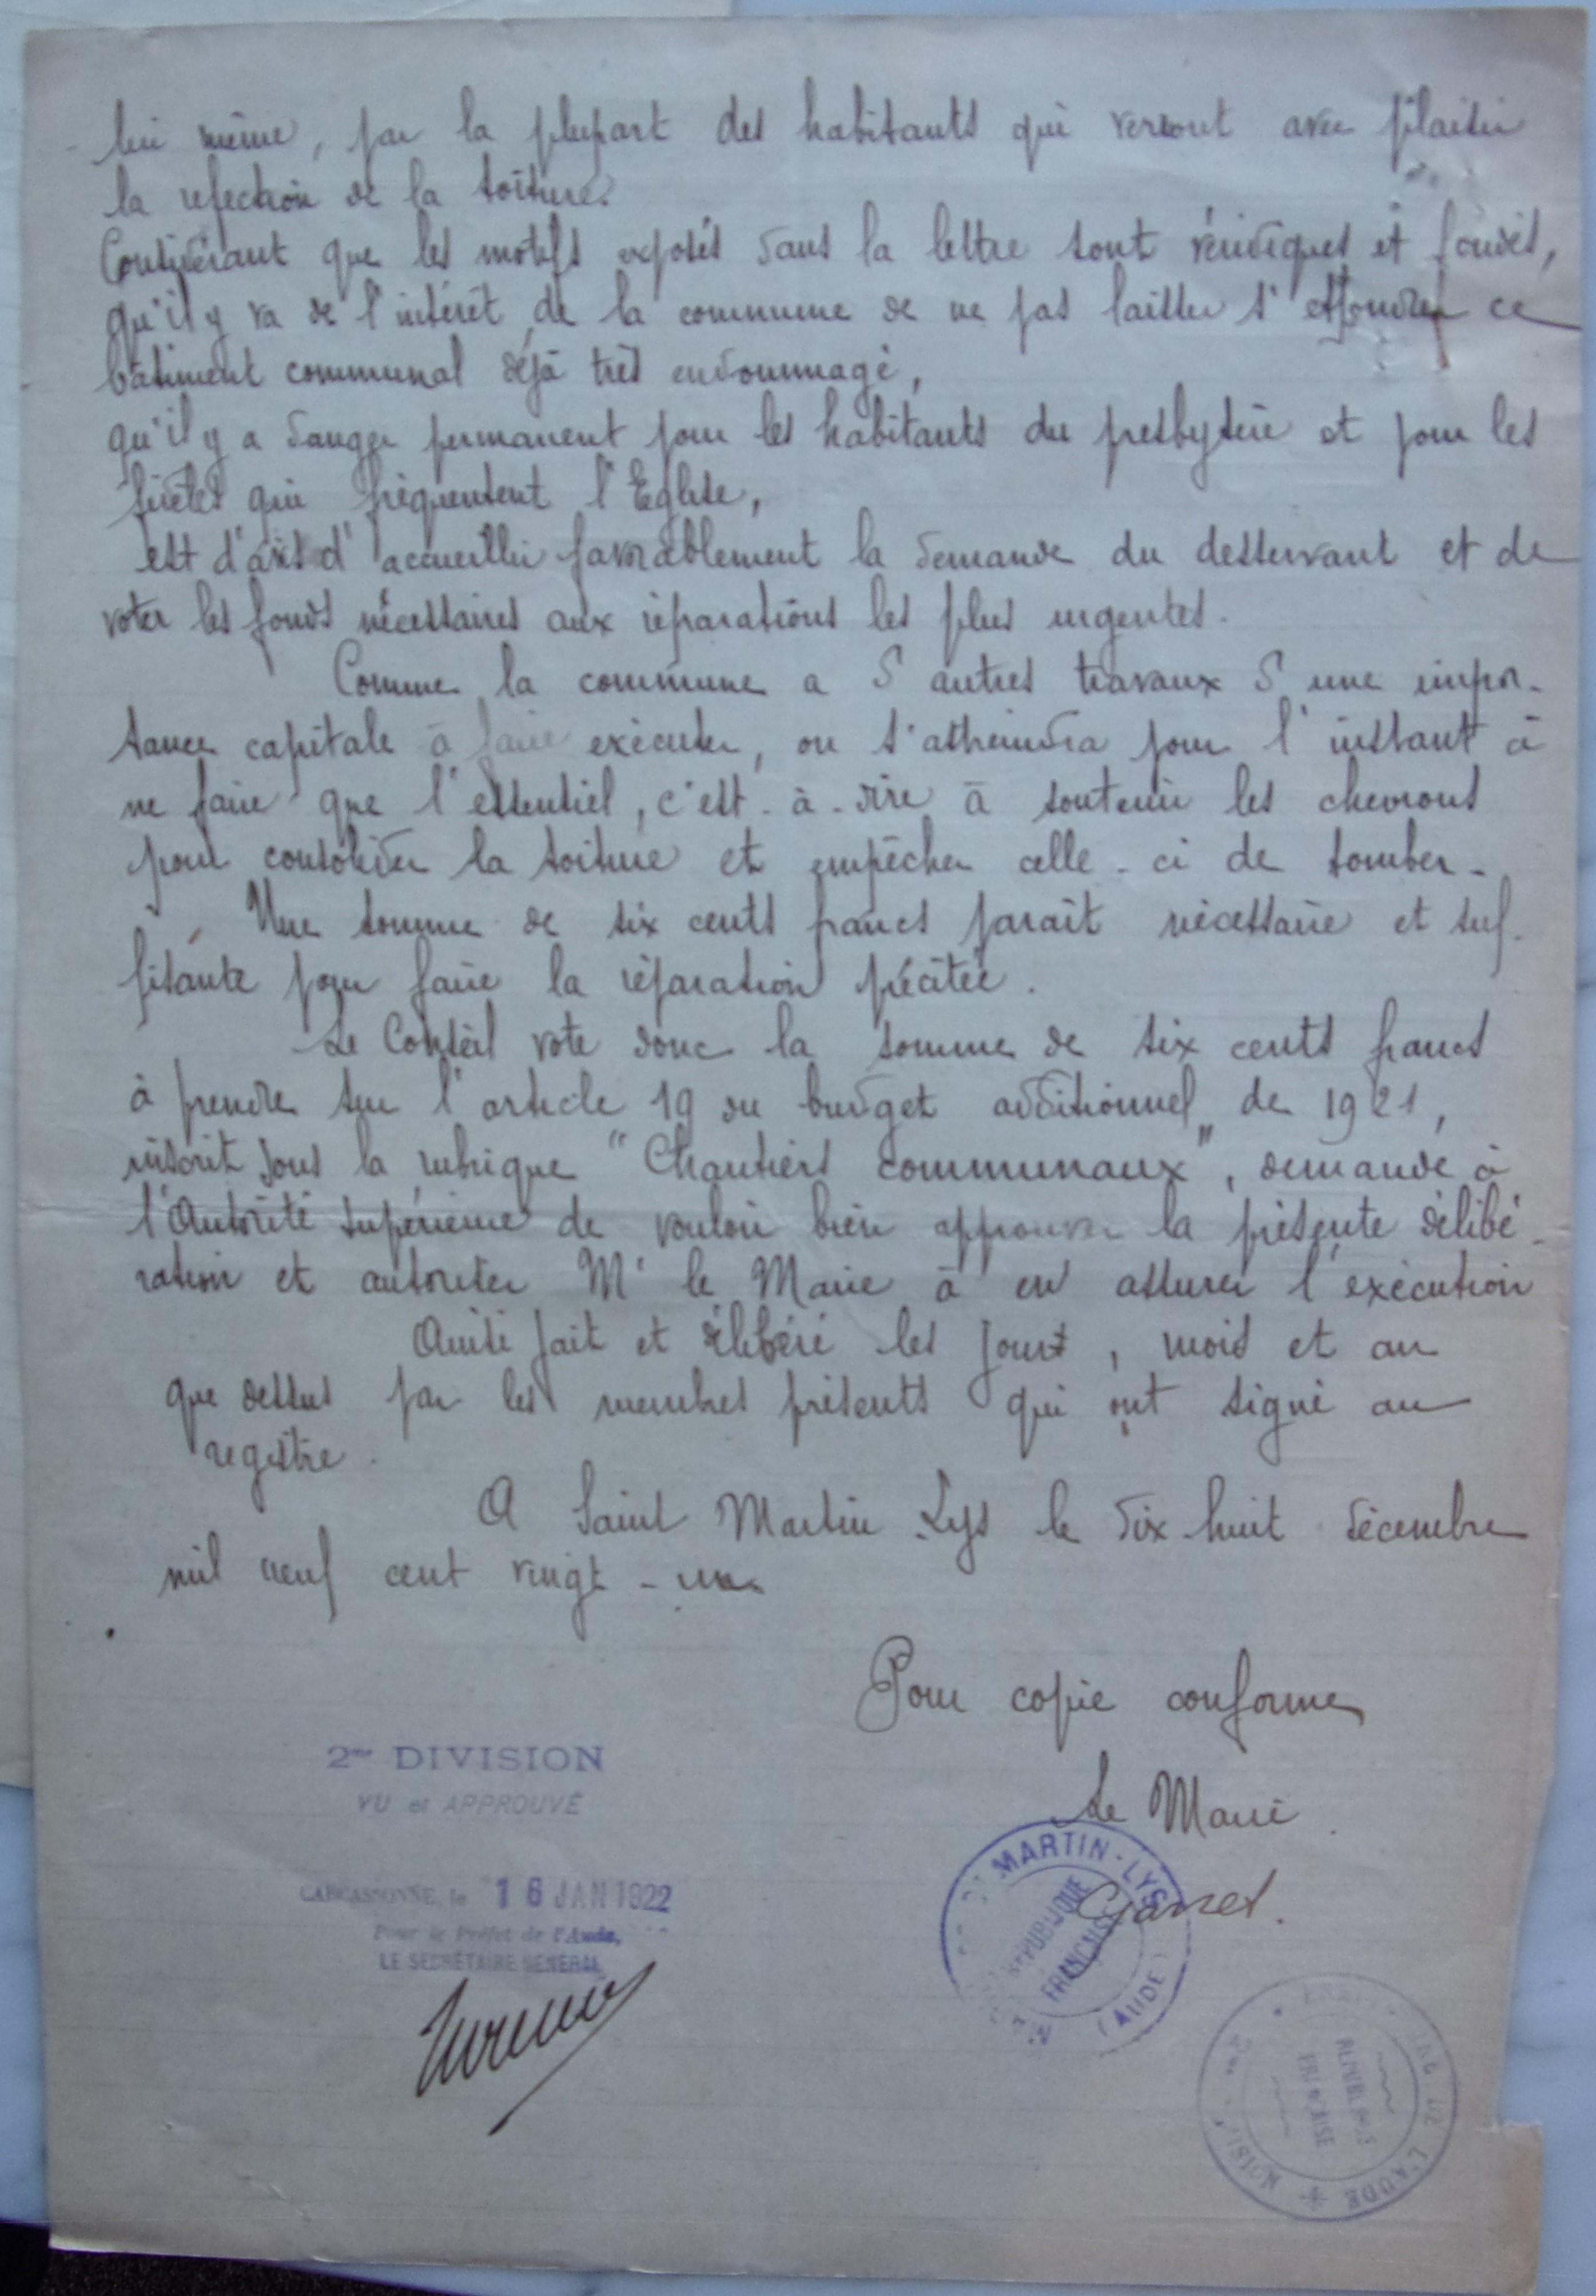 lui même, par la plupart des habitants qui verront avec plaisir
la refection de la toiture.
Considérant que les motifs exposés dans la lettre sont véridiques et fondés,
qu'il y va de l'intérêt de la commune de ne pas laisser s'effondrer ce
bâtiment communal déjà très endommagé,
qu'il y a danger permanent pour les habitants du presbytère et pour les
fidèles qui fréquentent l'Eglise,
est d'avis d'accueillir favorablement la demande du desservant et de
voter les fonds nécessaires aux réparations les plus urgentes.
Comme la commune a d'autres travaux d'une impor-
tance capitale à faire exécuter, on s'astreindra pour l'instant à
ne faire que l'essentiel, c'est-à-dire à soutenir les chevrons
pour consolider la toiture et empêcher celle-ci de tomber.
Une somme de six cents francs parait nécessaire et suf-
fisante pour faire la réparation précitée.
Le Conseil vote donc la somme de six cents francs
à prendre sur l'article 19 du budget additionnel de 1921,
inscrit sous la rubrique "Chantiers communaux", demande à
l'Autorité supérieure de vouloir bien approuver la présente délibé-
ration et autoriser Mr le Maire à en assurer l'exécution
Ainsi fait et délibéré les jours, mois et an
que dessus par les membres présents qui ont signé au
registre.
A Saint Martin Lys le dix-huit décembre
mil neuf cent vingt-un
Pour copie conforme
Le Maire
2me DIVISION
VU et APPROUVÉ
CARCASSONNE, le 16 JAN 1922
Pour le Préfet de l'Aude,
LE SECRÉTAIRE GÉNÉRAL
MARTIN-LYS
RÉPUBLIQUE
FRANÇAISE
(AUDE)
DE L'AUDE